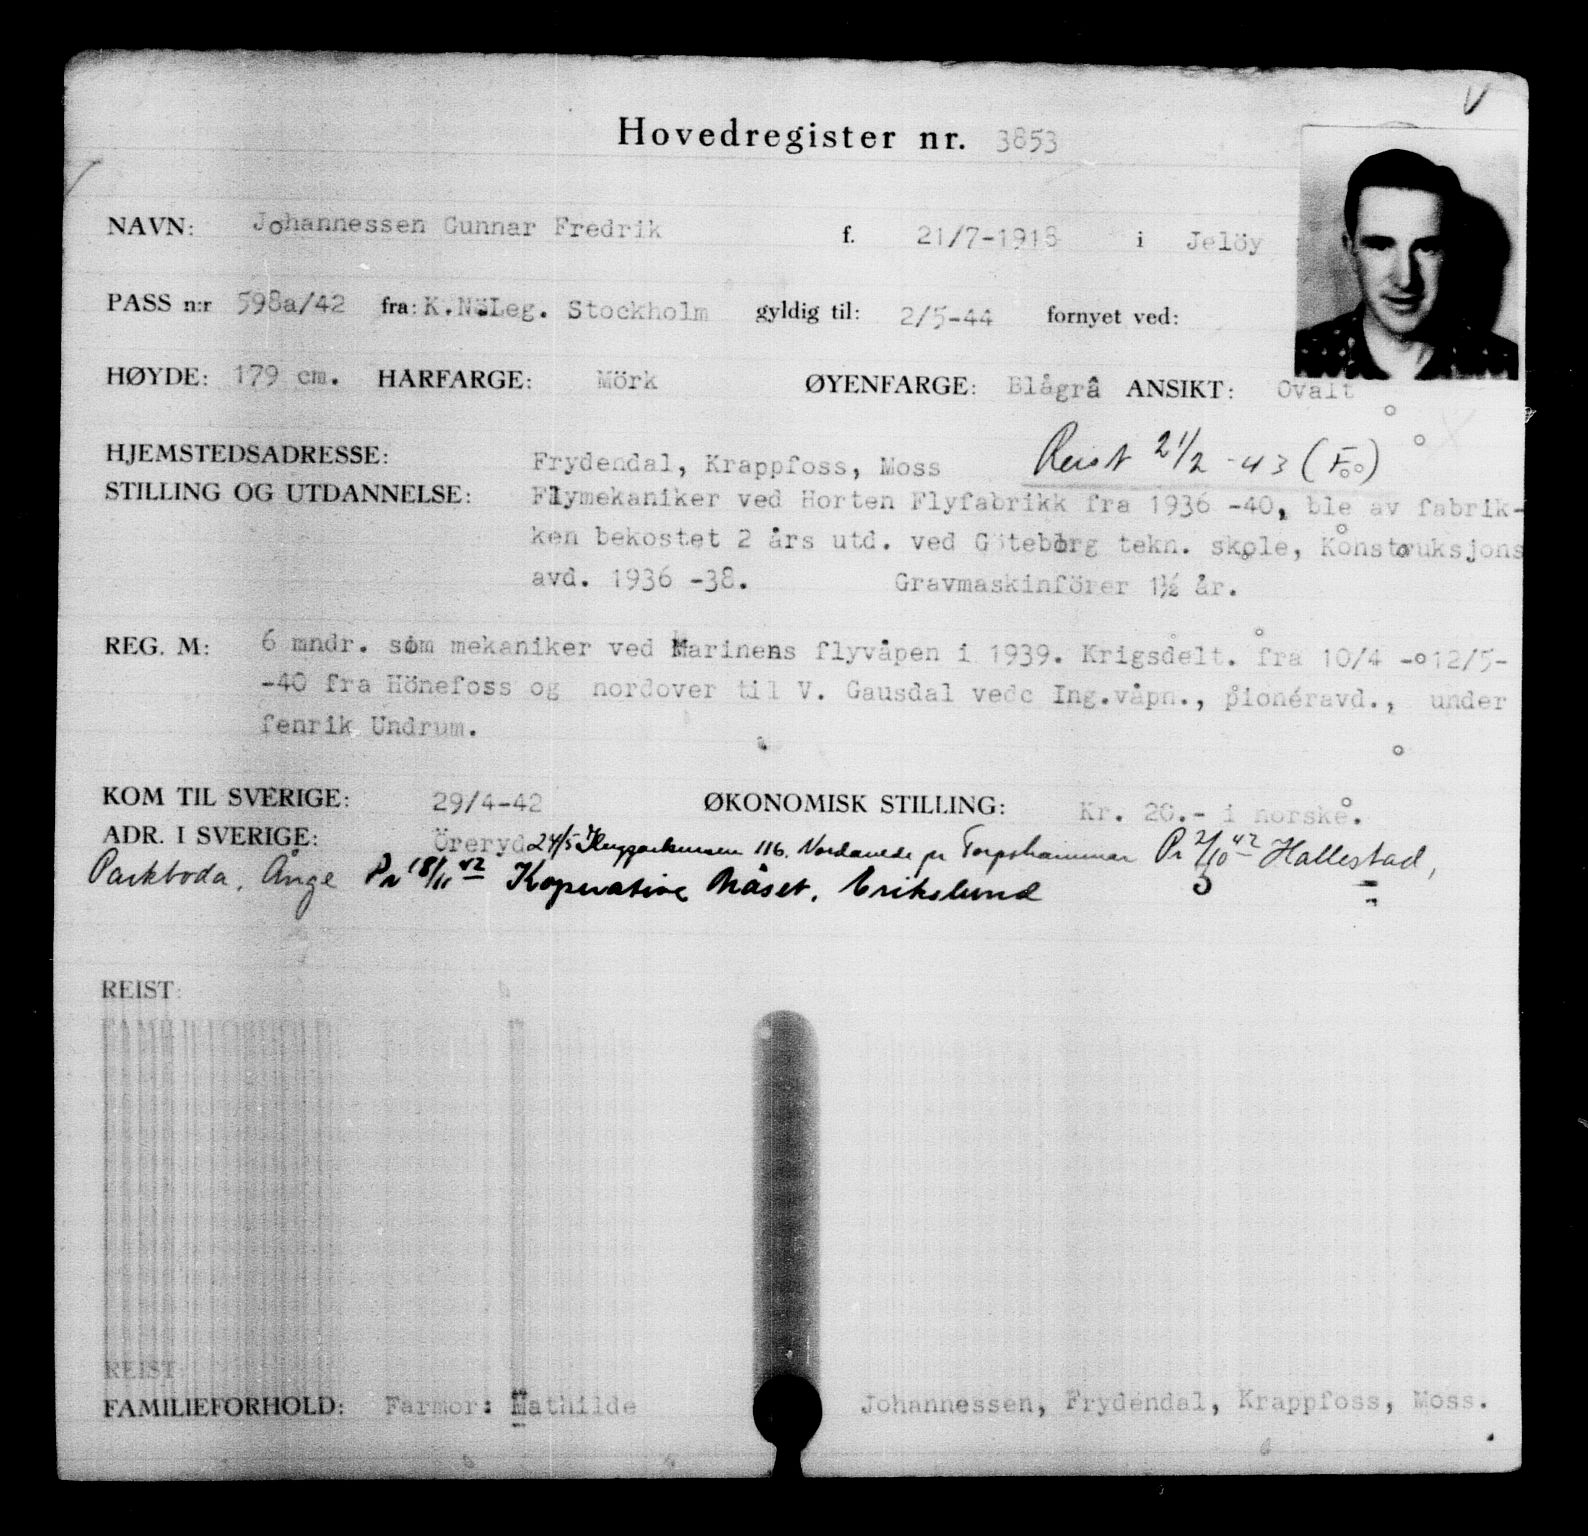 Hovedregister nr. 3853
NAVN: Johannessen Gunnar Fredrik f. 21/7-1918 i Jelöy
PASS n:r 598a/42 fra: K.N.Leg. Stockholm gyldig til: 2/5-44 fornyet ved:
HØYDE: 179 cm. HARFARGE: Mörk ØYENFARGE: Blågrå ANSIKT: Ovalt
HJEMSTEDSADRESSE: Frydendal, Krappfoss, Moss Reist 21/2-43 (F)
STILLING OG UTDANNELSE: Flymekaniker ved Horten Flyfabrikk fra 1936 -40, ble av fabrik-
ken bekostet 2 års utd. ved Göteborg tekn. skole, Konstruksjons
avd. 1936 -38. Gravmaskinförer 1½ år.
REG. M: 6 mndr. som mekaniker ved Marinens flyvåpen i 1939. Krigsdelt. fra 10/4 - 12/5-
-40 fra Hönefoss og nordover til V. Gausdal ved Ing.våpn., pionéravd., under
fenrik Undrum.
KOM TIL SVERIGE: 29/4-42 ØKONOMISK STILLING: Kr. 20.- i norske.
ADR. I SVERIGE: Öreryd 24/5 116. Nordanede pr Torpshammar Pr 2/10 42 Hallestad,
Parkboda, Ånge Pr 18/11 42 Koperative Måset. Erikslund
REIST:
REIST:
FAMILIEFORHOLD: Farmor: Mathilde Johannessen, Frydendal, Krappfoss, Moss.